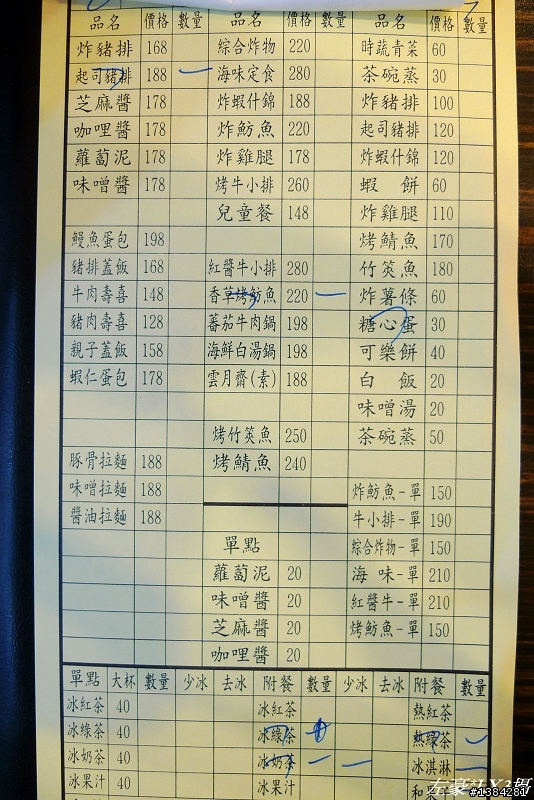 品名 價格 數量 品名 價格 數量 品名 價格 數量
炸豬排 168 綜合炸物 220 時蔬青菜 60
起司豬排 188 一 海味定食 280 茶碗蒸 30
芝麻醬 178 炸蝦什錦 188 炸豬排 100
咖哩醬 178 炸魴魚 220 起司豬排 120
蘿蔔泥 178 炸雞腿 178 炸蝦什錦 120
味噌醬 178 烤牛小排 260 蝦餅 60
兒童餐 148 炸雞腿 110
鰻魚蛋包 198 烤鯖魚 170
豬排蓋飯 168 紅醬牛小排 280 竹筴魚 180
牛肉壽喜 148 香草烤魴魚 220 一 炸薯條 60
豬肉壽喜 128 蕃茄牛肉鍋 198 糖心蛋 30
親子蓋飯 158 海鮮白湯鍋 198 可樂餅 40
蝦仁蛋包 178 雲月齋(素) 188 白飯 20
味噌湯 20
烤竹筴魚 250 茶碗蒸 50
豚骨拉麵 188 烤鯖魚 240
味噌拉麵 188 炸魴魚-單 150
醬油拉麵 188 牛小排-單 190
單點 綜合炸物-單 150
蘿蔔泥 20 海味-單 210
味噌醬 20 紅醬牛-單 210
芝麻醬 20 烤魴魚-單 150
咖哩醬 20
單點 大杯 數量 少冰 去冰 附餐 數量 少冰 去冰 附餐 數量
冰紅茶 40 冰紅茶 熱紅茶
冰綠茶 40 冰綠茶 熱綠茶
冰奶茶 40 冰奶茶 一 一 冰淇淋 一
冰果汁 40 冰果汁 和
#1384281